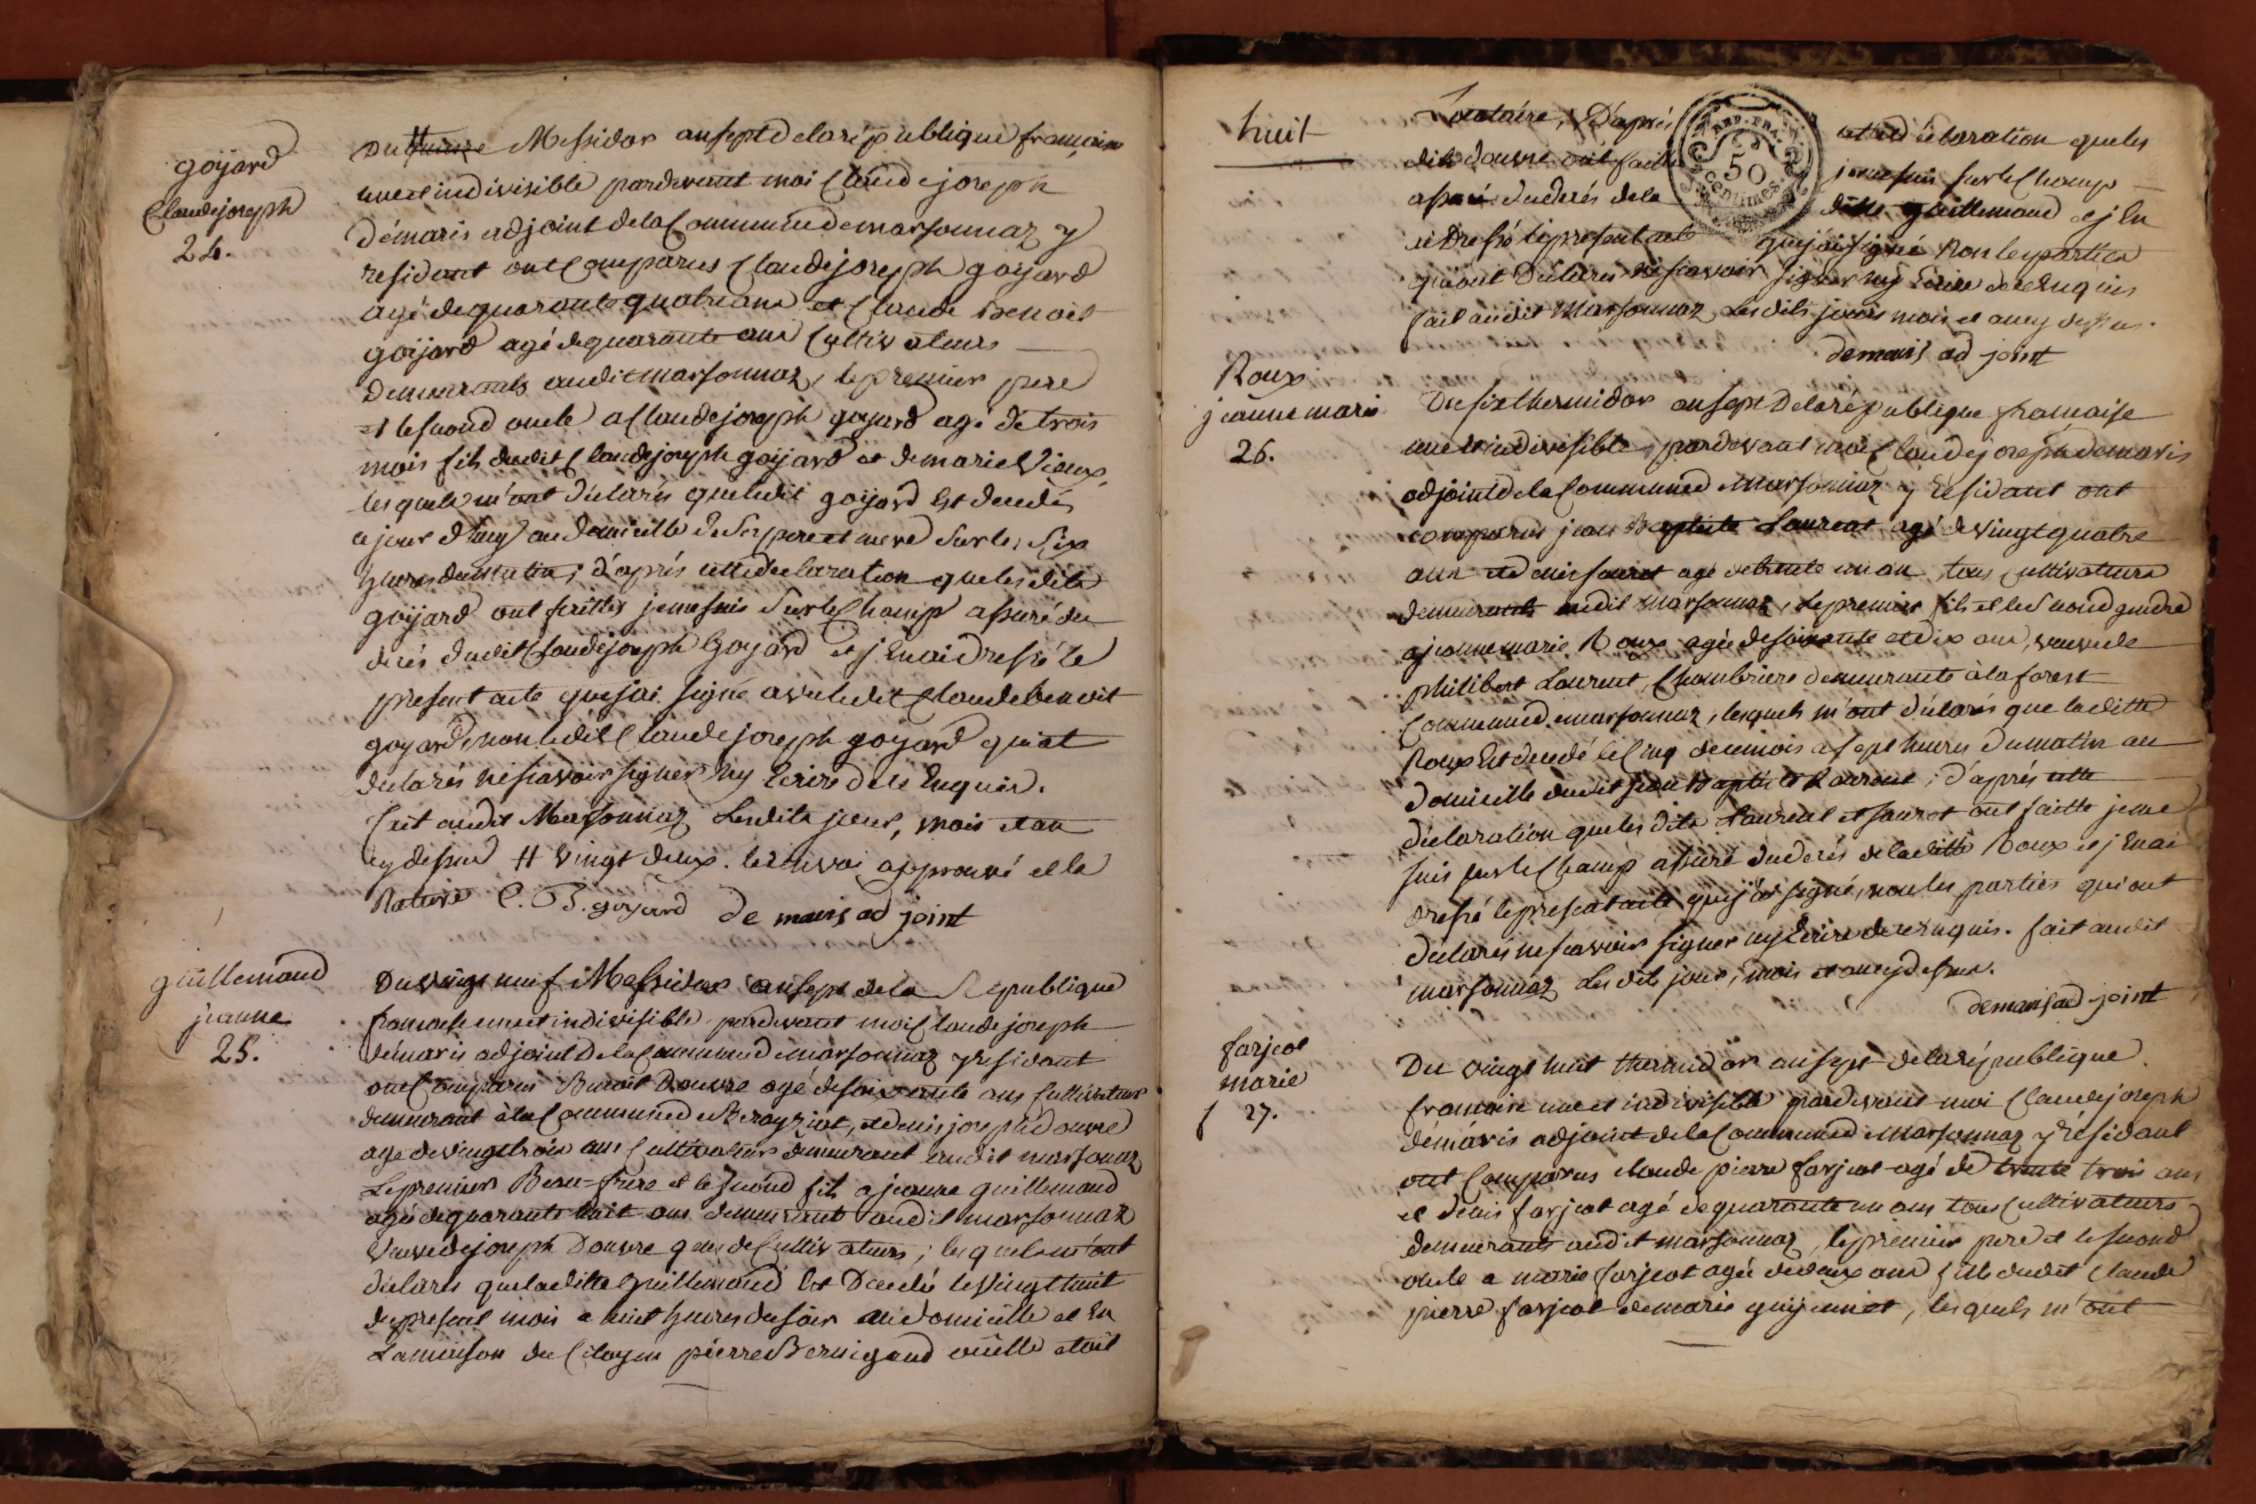 goÿard
Claudejoseph
24.
Du quinze Messidor an sept de la république française
une et indivisible pardevant moi Claude joseph
démaris adjoint de la Commune de marsonnaz y
residant ont Comparus Claudejoseph goÿard
agé de quarante quatre ans et Claude Benoit
goÿard agé de quarante ans Cultivateurs
demeurants audit marsonnaz, le premier pere
et le second oncle a Claudejoseph goyard agé de trois
mois fils dudit Claudejoseph goÿard et de marie Vieux,
lesquels m'ont déclarés que ledit goÿard Est decedé
ce jour d'huy au domicille de Ses pere et mere Sur les Six
heures du matin; d'aprés cette declaration que les dits
goÿard ont faitte, je me suis Sur le Champ assuré du
décés dudit Claudejoseph Goyard et j'En ai dressé le
present acte que jai signé avec ledit Claude Benoit
goyard, non ledit Claude joseph goyard qui at
declarés ne scavoir signer ny Ecrire de ce Enquis.
fait audit Marsonnaz Lesdits jour, mois et an
cy dessus # vingt deux. le renvoi approuvé et la
Rature C. B. goyard de maris ad joint
guillemaud
jeanne
25.
Du vingt neuf Messidor an sept de la Republique
francaise une et indivisible pardevant moi Claude joseph
démaris adjoint de la Commune de marsonnaz y residant
ont Comparus Benoit Douvre agé de soixante ans Cultivateur
demeurant à la Commune de Bereyziat, et denis joseph douvre
age de vingt trois ans Cultivateur demeurant audit marsonnaz
Le premier Beau-frere et le second fils a jeanne guillemaud
agée de quarante huit ans demeurant audit marsonnaz
Veuve de joseph Douvre de Cultivateurs; lesquels m'ont
déclarés que laditte Guillemaud Est Decedée le Vingt huit
du present mois a huit heures du soir au domicille et En
La maison du Citoyen pierre Bernigaud ou elle etoit
huit
Locataire; D'aprés cette déclaration que les
dits douvre ont faitte je me suis sur le Champ
assuré du decés de la ditte guillemaud et j'En
ai Dressé le present acte que j'ai signé Non les parties
qui ont Déclarés ne scavoir signer ny Ecrire de ce Enquis
fait audit Marsonnaz, Lesdits jours mois et an cy dessus.
demaris ad joint
REP. FRA.
50
centimes.
Roux
jeanne marie
26.
Du six thermidor an sept De la république francaise
une et indivisible pardevant moi Claude joseph demaris
adjoint de la Commune de Marsonnaz y Residant ont
comparus jean Baptiste Laurent agé de vingt quatre
ans et denis sauret agé de trente un an tous Cultivateurs
demeurants audit marsonnaz, Le premier fils et le Second gendre
a jeanne marie Roux agée de soixante et dix ans, veuve de
philibert Laurent, Chambriere demeurante à la forest
Commune de marsonnaz, lesquels m'ont déclarés que laditte
Roux Est decedé le Cinq de ce mois a sept heures du matin au
Domicille dudit jean Baptiste Laurent; d'aprés cette
déclaration que les dits Laurent et sauret ont faitte je me
suis sur le Champ assuré du decés de laditte Roux et j'En ai
dressé le present acte que j'ai signé, non les parties qui ont
déclarés ne scavoir signer ny Ecrire de ce Enquis. fait audit
marsonnaz Les dits jour, mois et an cy dessus.
demaris ad joint
farjeot
marie
27.
Du vingt huit thermidor an sept de la république
francaise une et indivisible pardevant moi Claudejoseph
démaris adjoint de la Commune de Marsonnaz y Résidant
ont Comparus claude pierre farjeot agé de trente trois ans
et denis farjeot agé de quarante un ans tous Cultivateurs
demeurants audit marsonnaz, le premier pere et le second
oncle a marie farjeot agée de deux ans fille dudit Claude
pierre farjeot et de marie guijenniot, lesquels m'ont